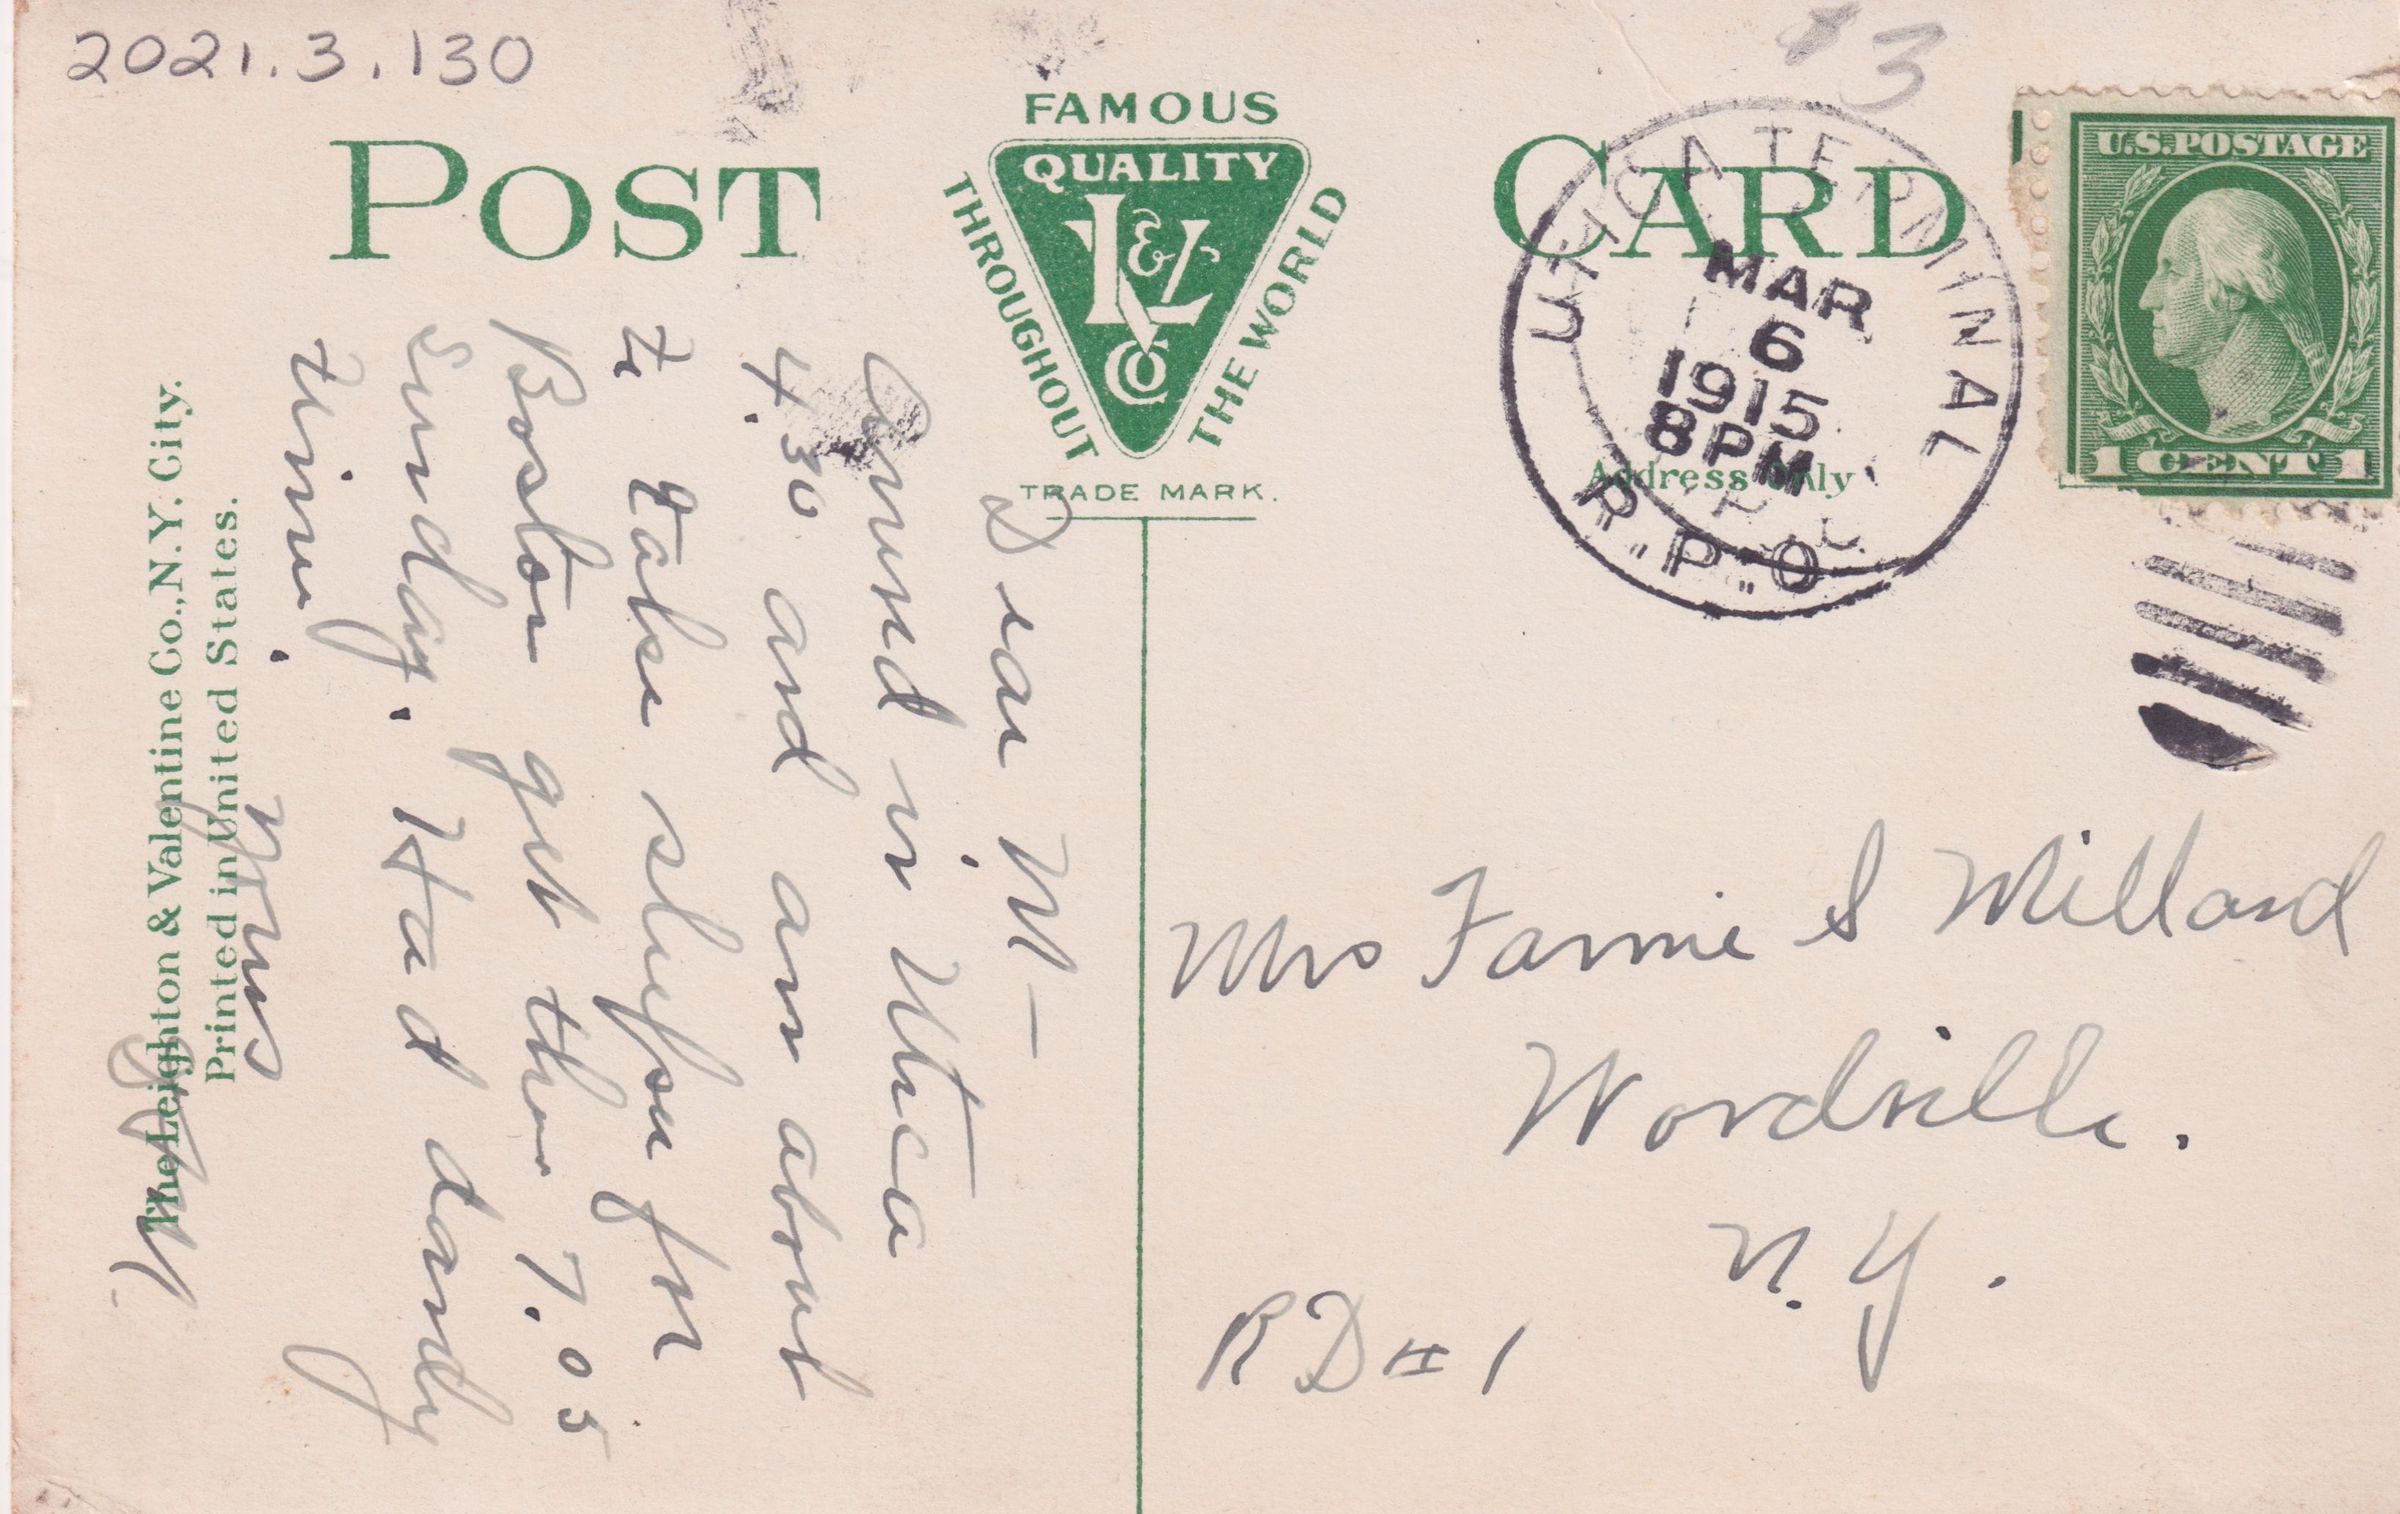 2021.3.130
$3
POST CARD
FAMOUS
QUALITY
L & V Co
THROUGHOUT
THE WORLD
TRADE MARK.
Address Only
U.S. POSTAGE
1 CENT 1
UTICA TERMINAL
MAR
6
1915
8 PM
R.P.O.
Dear M-
Arrived in Utica
4.30 and am about
to take sleeper for
Boston get there 7.05
Sunday. Had dandy
time.
Yours
M.
The Leighton & Valentine Co., N.Y. City.
Printed in United States.
Mrs Fannie S Millard
Woodville.
N.Y.
RD #1